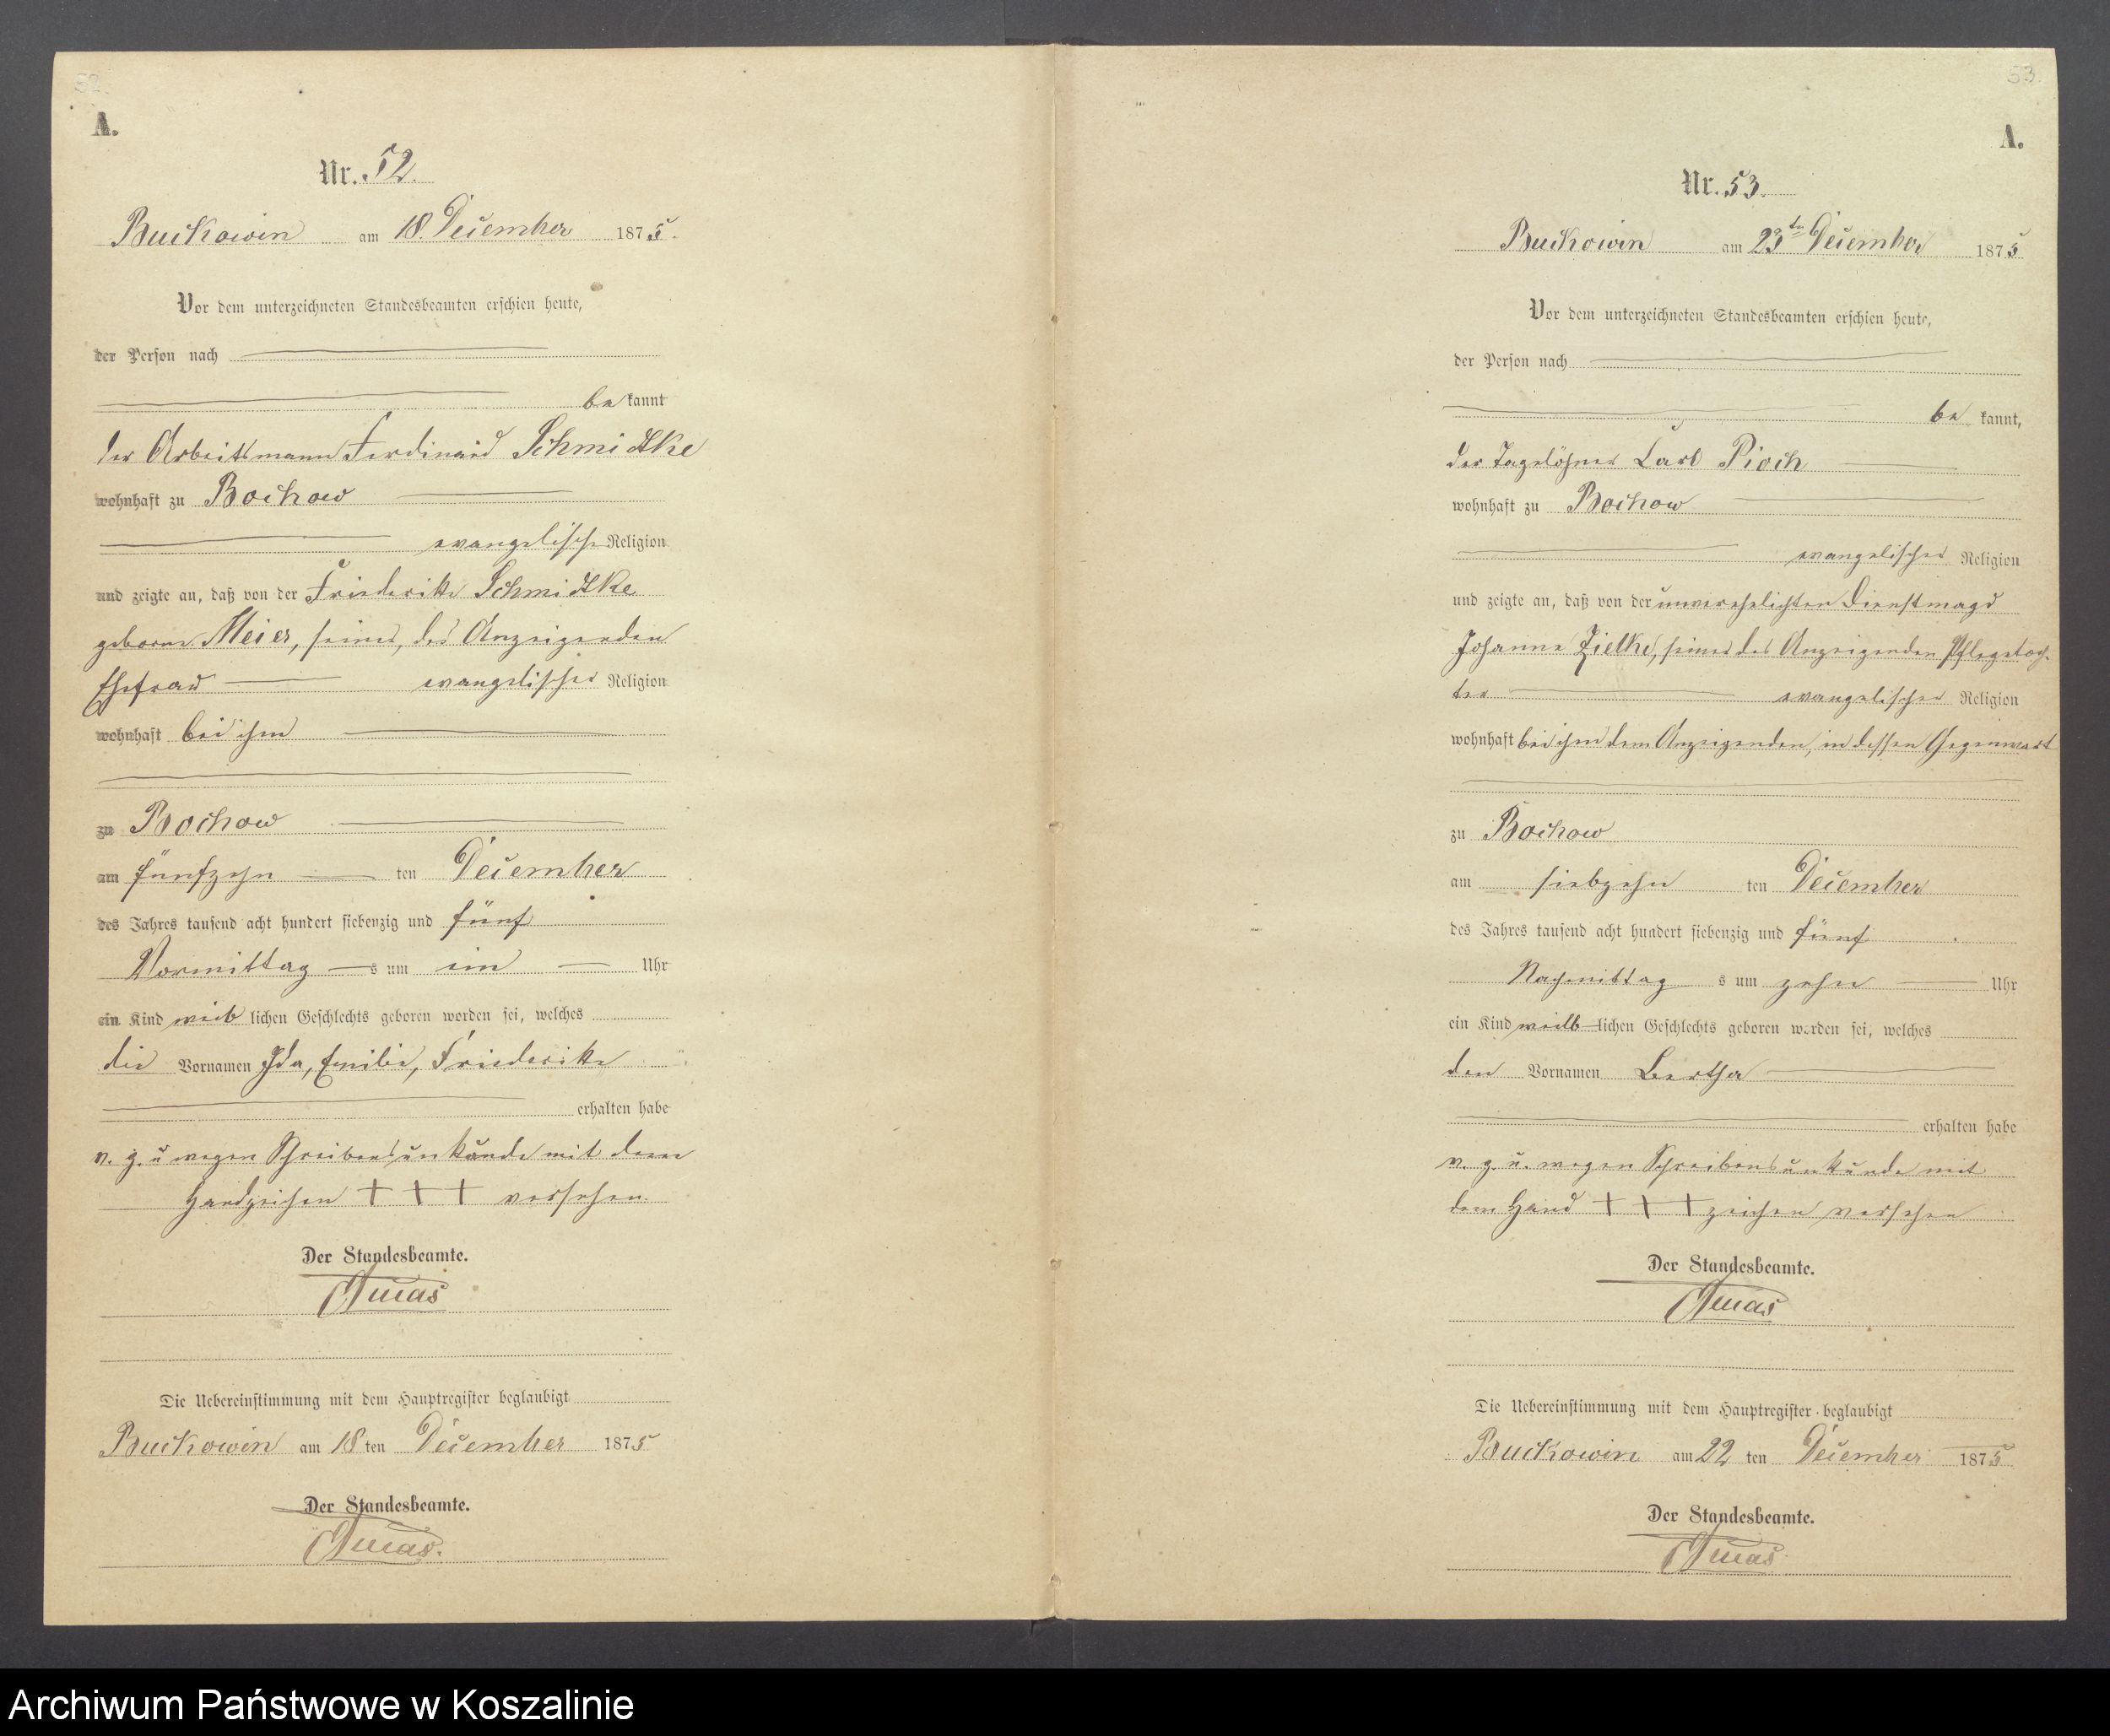 52.
A.
Nr. 52.
Buckowin am 18. December 1875.
Vor dem unterzeichneten Standesbeamten erschien heute,
der Person nach
bekannt
der Arbeitsmann Ferdinand Schmidtke
wohnhaft zu Bochow
evangelische Religion
und zeigte an, daß von der Friederike Schmidtke
geborne Meier, seiner, des Anzeigenden
Ehefrau evangelischer Religion
wohnhaft bei ihm
zu Bochow
am fünfzehn ten December
des Jahres tausend acht hundert siebenzig und fünf
Vormittag s um ein Uhr
ein Kind weiblichen Geschlechts geboren worden sei, welches
die Vornamen Ida, Emilie, Friederike
erhalten habe
v. g. u wegen Schreibensunkunde mit dem
Handzeichen + + + versehen.
Der Standesbeamte.
Die Uebereinstimmung mit dem Hauptregister beglaubigt
Buckowin am 18 ten December 1875
Der Standesbeamte.
53.
A.
Nr. 53.
Buckowin am 23ten December 1875
Vor dem unterzeichneten Standesbeamten erschien heute,
der Person nach
bekannt,
der Tagelöhner Carl Pioch
wohnhaft zu Bochow
evangelischer Religion
und zeigte an, daß von der unverehelichten Dienstmagd
Johanne Zielke, seiner des Anzeigenden Pflegetoch-
ter evangelischer Religion
wohnhaft bei ihm dem Anzeigenden, in dessen Gegenwart
zu Bochow
am siebzehn ten December
des Jahres tausend acht hundert siebenzig und fünf
Nachmittag s um zehn Uhr
ein Kind weiblichen Geschlechts geboren worden sei, welches
den Vornamen Bertha
erhalten habe
v. g. u. wegen Schreibensunkunde mit
dem Hand + + + zeichen versehen
Der Standesbeamte.
Die Uebereinstimmung mit dem Hauptregister beglaubigt
Buckowin am 22 ten December 1875
Der Standesbeamte.
Archiwum Państwowe w Koszalinie